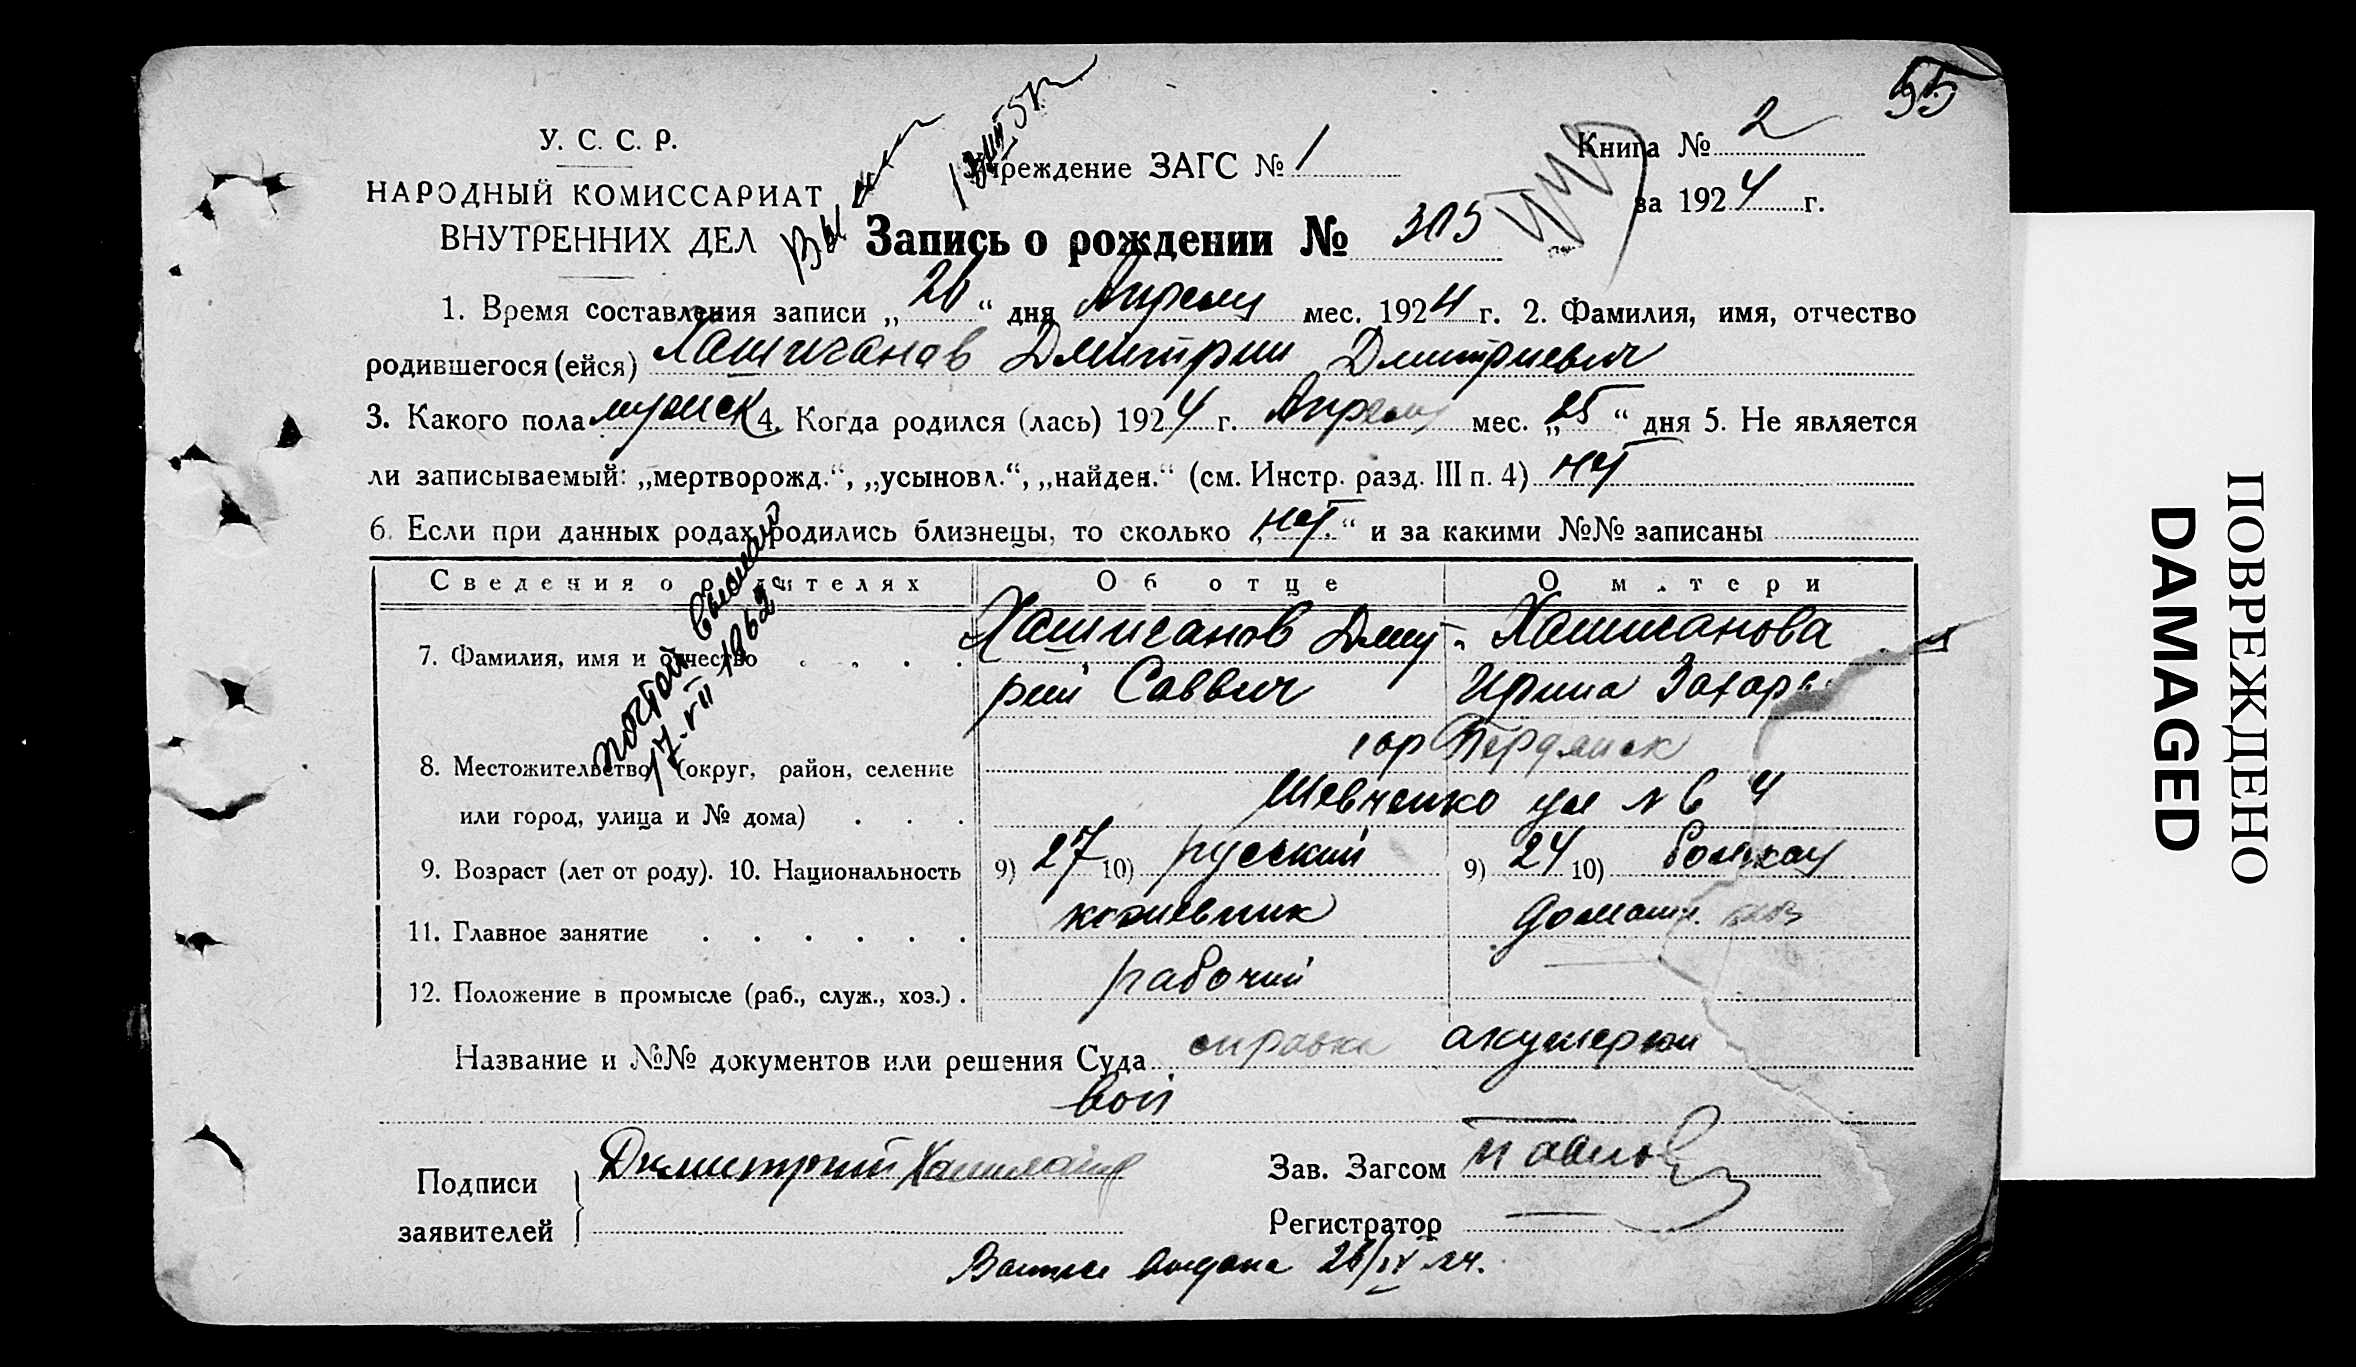 55
У. С. С. Р.
НАРОДНЫЙ КОМИССАРИАТ
ВНУТРЕННИХ ДЕЛ
Учреждение ЗАГС № 1
Книга № 2
за 1924 г.
Запись о рождении № 315
1. Время составления записи „ 26 “ дня Апреля мес. 1924 г. 2. Фамилия, имя, отчество
родившегося (ейся) Хашиганов Дмитрий Дмитриевич
3. Какого пола мужск 4. Когда родился (лась) 1924 г. Апреля мес. „ 25 “ дня 5. Не является
ли записываемый: „мертворожд.“, „усыновл.“, „найден.“ (см. Инстр. разд. III п. 4) нет
6. Если при данных родах родились близнецы, то сколько „ нет “ и за какими №№ записаны
Сведения о родителях Об отце О матери
7. Фамилия, имя и отчество . . . . Хашиганов Дмит- Хашиганова
рий Саввич Ирина Захарь
8. Местожительство (округ, район, селение гор Бердянск
или город, улица и № дома) . . . Шевченко ул № 64
9. Возраст (лет от роду). 10. Национальность 9) 27 10) русский 9) 24 10)
11. Главное занятие . . . . . . кожевник домашн. хоз
12. Положение в промысле (раб., служ., хоз.) . рабочий
Название и №№ документов или решения Суда справка акушерки
Подписи заявителей Дмитрий
Зав. Загсом Павлов
Регистратор
выдана 26/IV 24.
почтой выслано
17-VII-1962
ПОВРЕЖДЕНО
DAMAGED